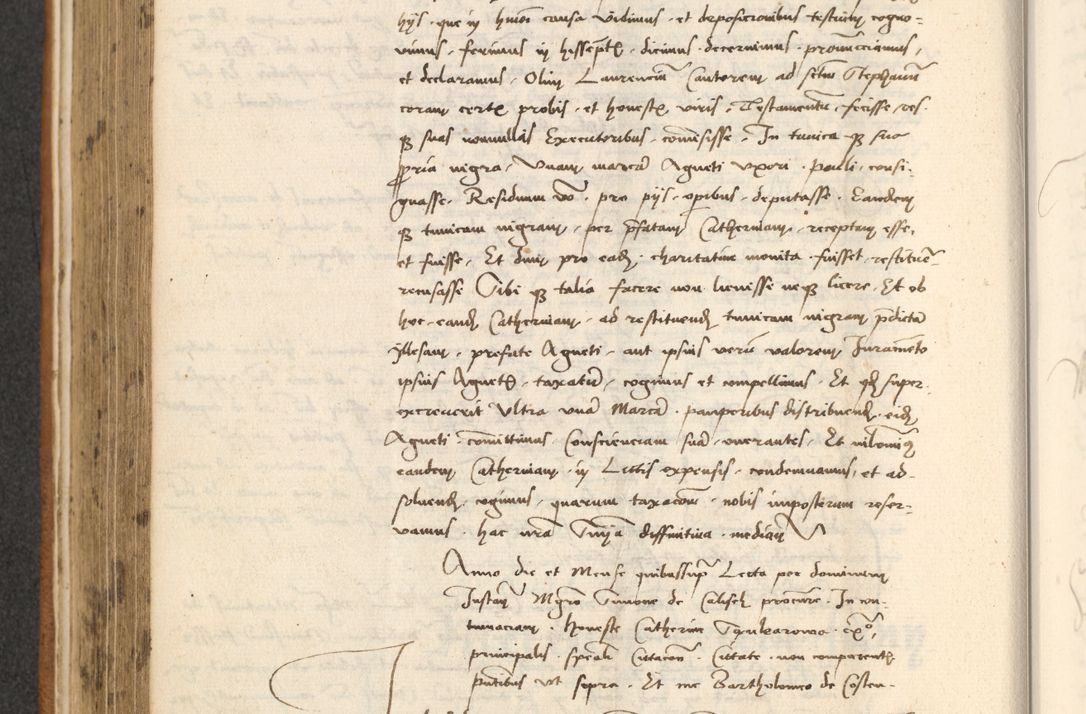 hijs · que in huiusmodi causa vidimus · et depositionibus testium cogno-
uimus, ferimus in hijs scriptis, dicimus · decernimus · pronunciamus,
et declaramus, Olim Laurencium Cantorem ad sctum Stephanum
coram certis probis · et honestis viris, Testamentum, fecisse, res
q suas nonnullas Executoribus · comisisse, In tunica q sua
ppria nigra, Vnam marcam Agneti vxori · Pauli, consi-
gnasse · Residuum vo · pro pijs, opibus · deputasse · Eandem
q tunicam nigram, per pfatam Catherinam, receptam esse,
et fuisse, Et dum pro eadem · charitatiue monita · fuisset, restituere
recusasse Sibi q talia facere non licuisse neq licere, Et ob
hoc, eandem Catherinam, ad restituendum tunicam nigram pdictam
yllesam, prefate Agneti, aut ipsius verum valorem Juramento
ipsius Agnetis, taxatum, cogimus et compellimus, Et quod super-
excreuerit Vltra vnam Marcam · pauperibus distribuendum · eidem
Agneti · comittimus Conscienciam suam, onerantes, Et nilominus
eandem Catherinam, in Littis expensis, condemnamus, et ad
soluendum, cogimus, quarum taxacionem, nobis imposterum reser-
vamus · hac nra Sniia diffinitiua · mediante
Anno die et Mense quibus supra Lecta per dominum
Instante Mgro Simone de Calisch procuratore · In con-
tumaciam · honeste Catherine · exo,
principalis · speciali Cittacione · Cittate · non comparentis
pntibus vt supra · Et me Bartholomeo de Costen-